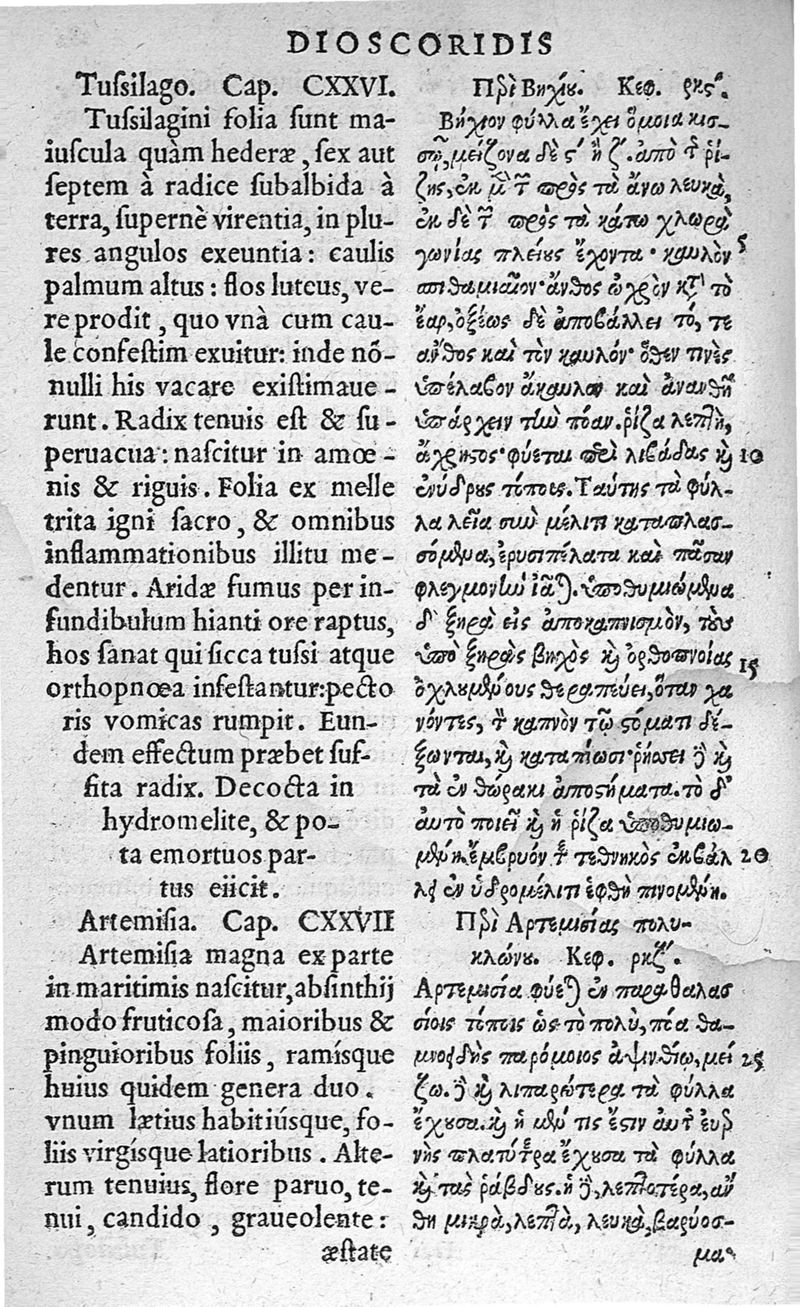 DIOSCORIDIS
Tuſsilago. Cap. CXXVI.
Tuſsilagini folia ſunt ma-
iuſcula quàm hederæ, ſex aut
ſeptem à radice ſubalbida à
terra, ſupernè virentia, in plu-
res angulos exeuntia: caulis
palmum altus: flos luteus, ve-
re prodit, quo vnà cum cau-
le confeſtim exuitur: inde nõ-
nulli his vacare exiſtimaue-
runt. Radix tenuis eſt & ſu-
peruacua: naſcitur in amœ-
nis & riguis. Folia ex melle
trita igni ſacro, & omnibus
inflammationibus illitu me-
dentur. Aridæ fumus per in-
fundibulum hianti ore raptus,
hos ſanat qui ſicca tuſsi atque
orthopnœa infeſtantur: pecto
ris vomicas rumpit. Eun-
dem effectum præbet ſuf-
fita radix. Decocta in
hydromelite, & po-
ta emortuos par-
tus eiicit.
Artemiſia. Cap. CXXVII
Artemiſia magna ex parte
in maritimis naſcitur, abſinthij
modo fruticoſa, maioribus &
pinguioribus foliis, ramíſque
huius quidem genera duo.
vnum lætius habitiúſque, fo-
liis virgíſque latioribus. Alte-
rum tenuius, flore paruo, te-
nui, candido, graueolente:
æſtate
Πρὶ Βηχίου. Κεφ. ρκϛʹ.
Βήχιον φύλλα ἔχει ὅμοια κισ-
σῷ, μείζονα δὲ ϛʹ ἢ ζʹ. ἀπὸ τῆς ῥί-
ζης, ἐκ μὲν τοῦ πρὸς τὰ ἄνω λευκὰ,
ἐκ δὲ τοῦ πρὸς τὰ κάτω χλωρὰ
γωνίας πλείους ἔχοντα· καυλὸν 5
σπιθαμιαῖον· ἄνθος ὠχρὸν κατὰ τὸ
ἔαρ, ὀξέως δὲ ἀποβάλλει τό, τε
ἄνθος καὶ τὸν καυλόν· ὅθεν τινὲς
ὑπέλαβον ἄκαυλον καὶ ἀνανθῆ
ὑπάρχειν τὴν πόαν. ῥίζα λεπτὴ,
ἄχρηστος· φύεται περὶ λιβάδας καὶ 10
ἐνύδρους τόπους. Ταύτης τὰ φύλ-
λα λεῖα σὺν μέλιτι καταπλασ-
σόμενα, ἐρυσιπέλατα καὶ πᾶσαν
φλεγμονὴν ἰᾶται. ὑποθυμιώμενα
δὲ ξηρὰ εἰς ἀποκαπνισμὸν, τοὺς
ὑπὸ ξηρᾶς βηχὸς καὶ ὀρθοπνοίας 15
ὀχλουμένους θεραπεύει, ὅταν χα
νόντες, τὸν καπνὸν τῷ στόματι δέ-
ξωνται, καὶ καταπίωσι· ῥήσσει δὲ καὶ
τὰ ἐν θώρακι ἀποστήματα. τὸ δ'
αὐτὸ ποιεῖ καὶ ἡ ῥίζα ὑποθυμιω-
μένη. ἔμβρυόν τε τεθνηκὸς ἐκβάλ 20
λει ἐν ὑδρομέλιτι ἑφθὴ πινομένη.
Πρὶ Ἀρτεμισίας πολυ-
κλώνου. Κεφ. ρκζʹ.
Ἀρτεμισία φύεται ἐν παραθαλασ
σίοις τόποις ὡς τὸ πολὺ, πόα θα-
μνοειδὴς παρόμοιος ἀψινθίῳ, μεί 25
ζω. δὲ καὶ λιπαρώτερα τὰ φύλλα
ἔχουσα. καὶ ἡ μέν τις ἔστιν αὐτῆς εὐερ
νὴς πλατύτερα ἔχουσα τὰ φύλλα
καὶ τὰς ῥάβδους. ἡ δὲ, λεπτοτέρα, ἄν
θη μικρὰ, λεπτὰ, λευκὰ, βαρύοσ-
μα·